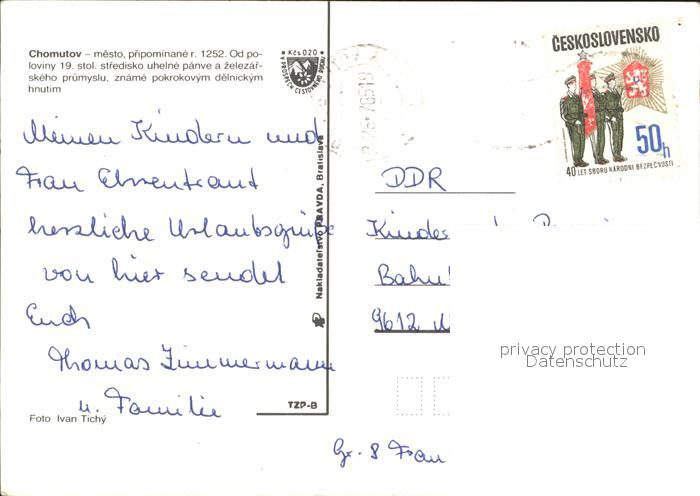 Chomutov – město, připomínané r. 1252. Od po-
loviny 19. stol. středisko uhelné pánve a železář-
ského průmyslu, známé pokrokovým dělnickým
hnutím
Kčs 0,20
V PROSPĚCH CESTOVNÍHO RUCHU
ČESKOSLOVENSKO
50h
40 LET SBORU NÁRODNÍ BEZPEČNOSTI
Meinen Kindern und
Frau Ehrentraut
herzliche Urlaubsgrüße
von hier sendet
Euch
Thomas Zimmermann
u. Familie
Foto Ivan Tichý
Nakladatelstvo PRAVDA, Bratislava
TZP-B
DDR
Kinder
Bahn
9612
privacy protection
Datenschutz
Gr. 8 Frau